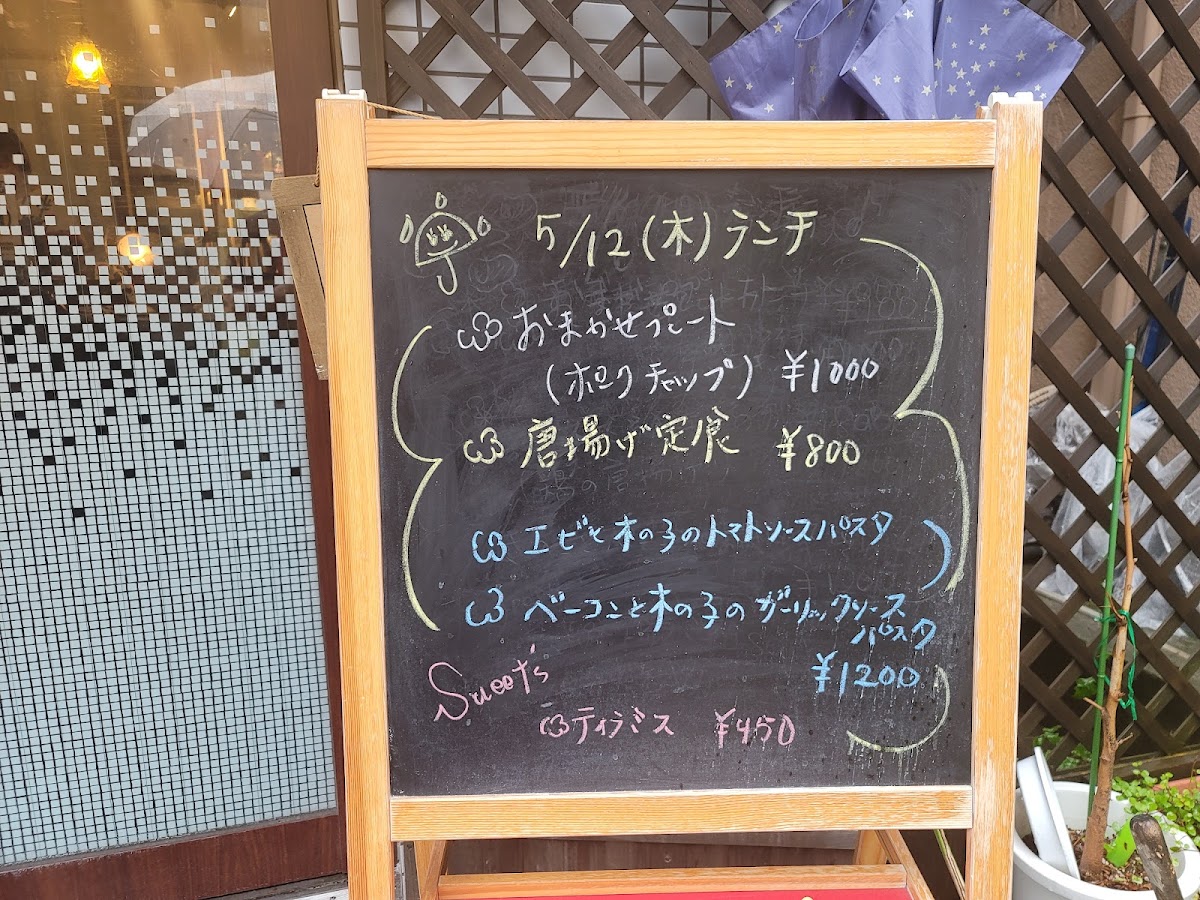 5/12(木)ランチ
おまかせプレート
(ポークチャップ) ¥1000
唐揚げ定食 ¥800
エビと木の子のトマトソースパスタ
ベーコンと木の子のガーリックソース
パスタ
¥1200
Sweet's
ティラミス ¥450